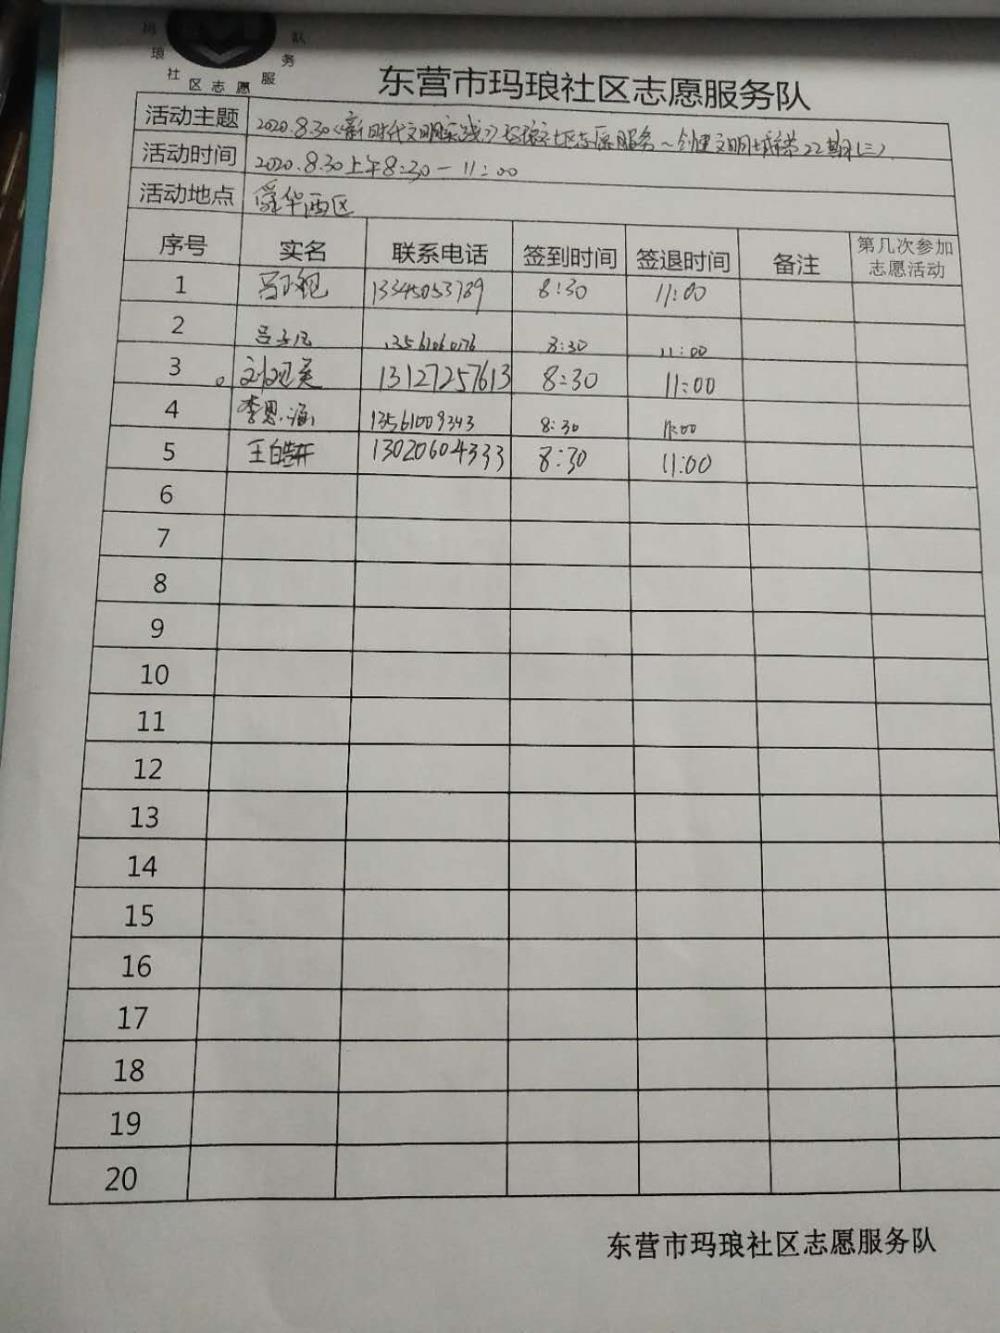 玛琅社区志愿服务队
东营市玛琅社区志愿服务队
活动主题 2020.8.30《新时代文明实践》玛琅社区志愿服务~创建文明城第22期(三)
活动时间 2020.8.30上午8:30-11:00
活动地点 舜华西区
序号 实名 联系电话 签到时间 签退时间 备注 第几次参加志愿活动
1 吕 13345053789 8:30 11:00
2 吕 8:30 11:00
3 刘 英 13127257613 8:30 11:00
4 李恩涵 13561009343 8:30 11:00
5 王皓 13020604333 8:30 11:00
6
7
8
9
10
11
12
13
14
15
16
17
18
19
20
东营市玛琅社区志愿服务队